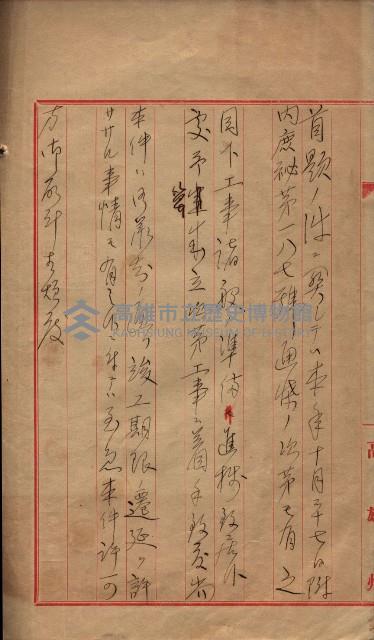 首題ノ件ニ関シテハ本年十月二十七日附
内庶秘第一八七號通牒ノ次第モ有之
目下工事諸般準備進捗致居候
處予算成立次第工事ニ着手致度尚
本件ハ竣工期限ノ遷延ヲ許
サザル事情モ有之候ニ付テハ至急本件許可
方御取計相煩度
高雄州
高雄市立歷史博物館
KAOHSIUNG MUSEUM OF HISTORY